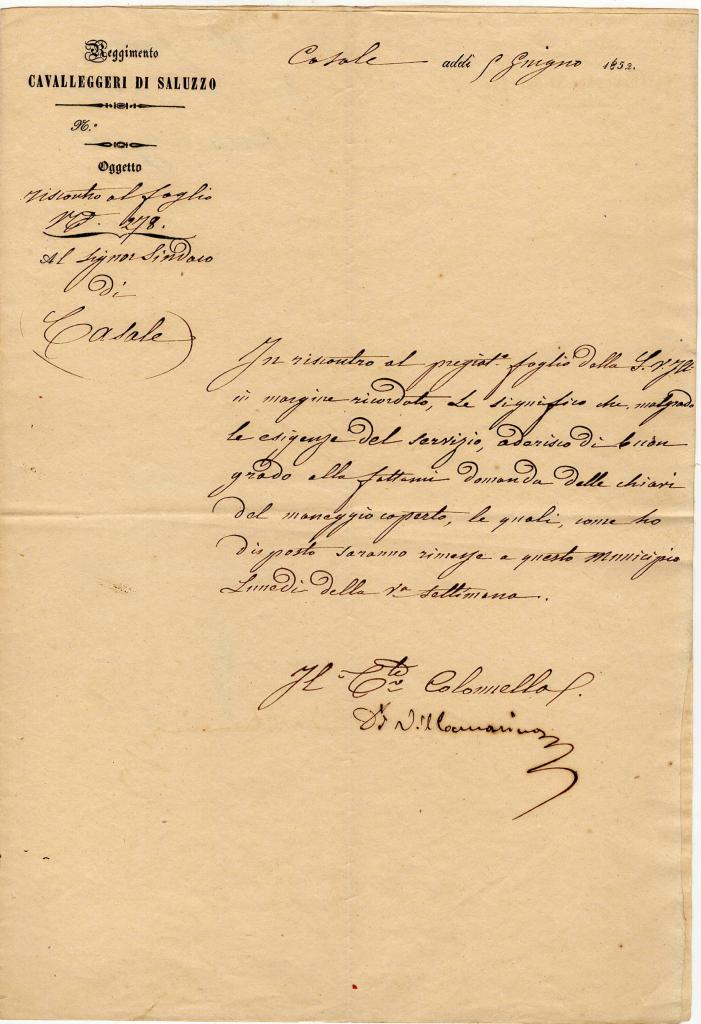 Reggimento
CAVALLEGGERI DI SALUZZO
N.°
Oggetto
riscontro al foglio
N.° 278.
Al Signor Sindaco
di
Casale
Casale addì 5 Giugno 1852.
In riscontro al pregiat.° foglio della S. V. Ill
in margine ricordato, Le significo che, malgrado
le esigenze del servizio, aderisco di buon
grado alla fattami domanda delle chiavi
del maneggio coperto, le quali, come ho
disposto saranno rimesse a questo Municipio
Lunedì della v.a Settimana.
Il C.te Colonnello
Di Villamarina